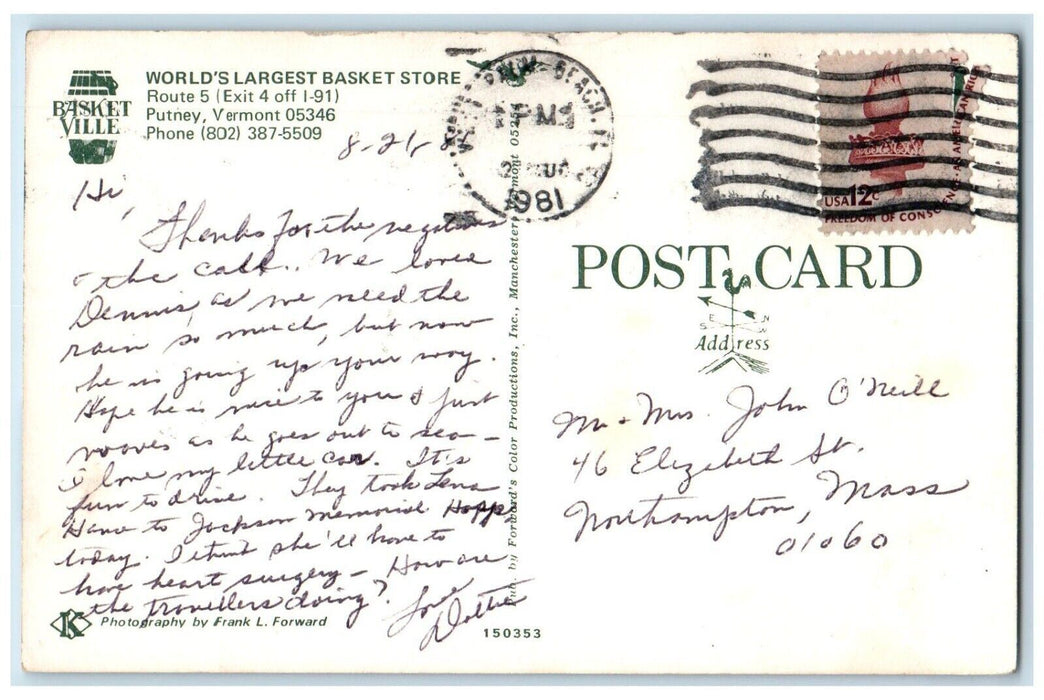 WORLD'S LARGEST BASKET STORE
Route 5 (Exit 4 off I-91)
Putney, Vermont 05346
Phone (802) 387-5509
BASKET
VILLE
8-21-8
Hi,
Thanks for the negatives
& the call.. We loved
Dennis, as we need the
rain so much, but now
he is going up your way.
Hope he is nice to you & just
as he goes out to sea -
I love my little car. It's
fun to drive. They took Lena
to Jackson Memorial Hosp
today. I think she'll have to
have heart surgery - How are
the travellers doing?
Love
Dottie
K Photography by Frank L. Forward
150353
Pub. by Forward's Color Productions, Inc., Manchester, Vermont 05254
PALM BEACH, FL
PM
AUG
1981
USA 12c
FREEDOM OF CONSCIENCE-AN AMERICAN RIGHT
POST CARD
E N
S W
Address
Mr + Mrs. John O'Neill
46 Elizabeth St.
Northampton, Mass
01060